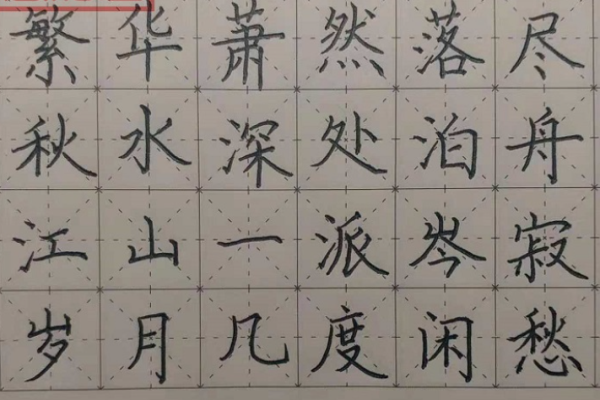 繁华萧然落尽
秋水深处泊舟
江山一派岑寂
岁月几度闲愁